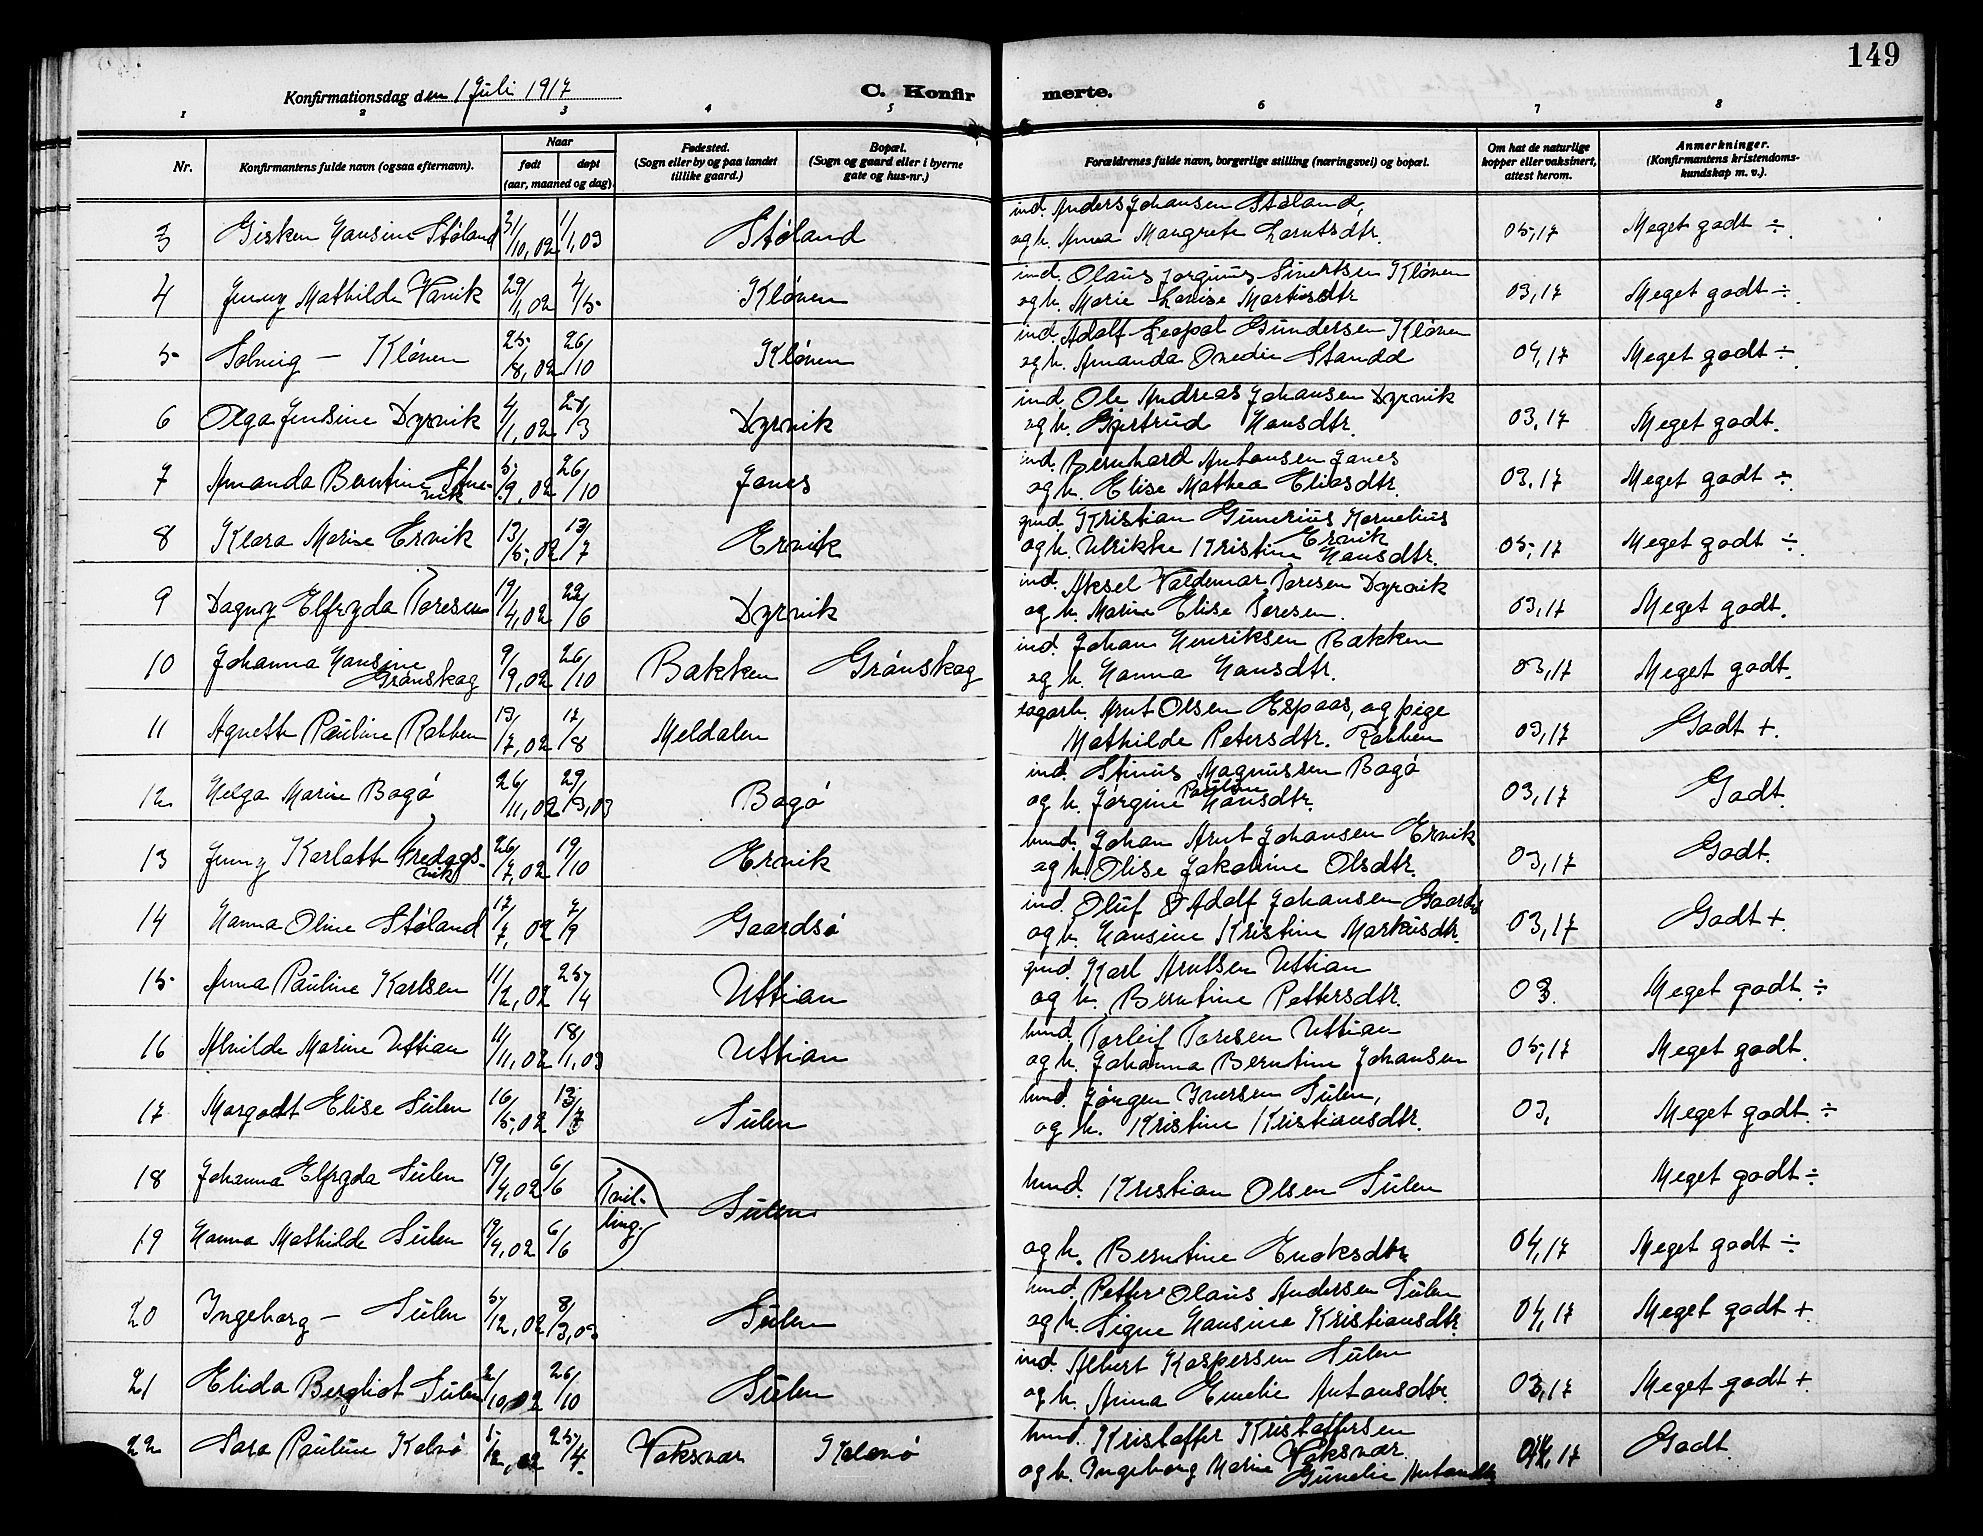 149
Konfirmationsdag den 1 Juli 1917
C. Konfirmerte.
1 2 3 4 5 6 7 8
Nr.
Konfirmantens fulde navn (ogsaa efternavn).
Naar
født døpt
(aar, maaned og dag).
Fødested.
(Sogn eller by og paa landet
tillike gaard.)
Bopæl.
(Sogn og gaard eller i byerne
gate og hus-nr.)
Forældrenes fulde navn, borgerlige stilling (næringsvei) og bopæl.
Om hat de naturlige
kopper eller vaksinert,
attest herom.
Anmerkninger.
(Konfirmantens kristendoms-
kundskap m. v.).
ind. Anders Johansen Støland,
3 Gisken Hansine Støland 31/10,02 1/1,03 Støland 05,17 Meget godt ÷.
og h. Anna Margrete Larntsdtr.
ind. Olaus Jørginus Sivertsen Kløven
4 Jenny Mathilde Vanik 29/1,02 4/5 Kløven 03,17 Meget godt ÷.
og h. Marie Lovise Martinsdtr
ind. Adolf Leopol Gundersen Kløven
5 Solveig — Kløven 25/8,02 26/10 Kløven 04,17 Meget godt ÷
og h. Amanda Ovedie Standd
ind. Ole Andreas Johansen Dyrvik
6 Olga Jensine Dyrvik 4/1,02 /3 Dyrvik 03,17 Meget godt.
og h. Gjertrud Hansdtr.
ind. Bernhard Antonsen Janes
7 Amanda Berntine 5/9,02 26/10 Janes 03,17 Meget godt ÷.
og h. Elise Mathea Eliasdtr.
gmd. Kristian Gunerius Kornelius
Ervik
8 Klara Marie Ervik 13/5,02 13/7 Ervik 05,17 Meget godt ÷.
og h. Ulrikke Kristine Hansdtr.
ind. Aksel Valdemar Toresen Dyrvik
9 Dagny Elfryda Toresen 19/4,02 22/6 Dyrvik 03,17 Meget godt.
og h. Marie Elise Toresen.
ind. Johan Henriksen Bakken
10 Johanna Hansine
Grønskag 9/9,02 26/10 Bakken Grønskag 03,17 Meget godt.
og h. Hanna Hansdtr.
Arnt Olsen Espaas, og pige
11 Agnette Pauline Rabben 13/7,02 17/8 Meldalen 03,17 Godt +.
Mathilde Petersdtr. Rabben
ind. Stinus Magnussen Bogø
12 Helga Marie Bogø 26/11,02 29/3,03 Bogø 03,17 Godt.
og h. Jørgine Pauline Hansdtr.
hmd. Johan Arnt Johansen Ervik
13 Jenny Karlotte Fredags-
vik 26/7,02 19/10 Ervik 03,17 Godt.
og h. Olise Jakobine Olsdtr.
ind. Oluf Adolf Johansen Gaardsø
14 Hanna Oline Støland 17/7,02 7/9 Gaardsø 03,17 Godt +.
og h. Hansine Kristine Markusdtr.
gmd. Karl Arntsen Uttian
15 Anna Pauline Karlsen 11/2,02 25/4 Uttian 03. Meget godt. ÷
og h. Berntine Pettersdtr.
hmd. Torleif Toresen Uttian
16 Alvilde Marine Uttian 11/11,02 18/1,03 Uttian 05,17 Meget godt.
og h. Johanna Berntine Johansen
hmd. Jørgen Iversen Sulen,
17 Margodt Elise Sulen 16/5,02 13/7 Sulen 03, Meget godt. ÷
og h. Kristine Kristiansdtr.
18 Johanna Elfryda Sulen 19/4,02 6/6 Sulen hmd. Kristian Olsen Sulen Meget godt ÷
Tvil-
ling.
19 Hanna Mathilde Sulen 19/4,02 6/6 og h. Berntine Enoksdtr 04,17 Meget godt ÷
hmd. Petter Olaus Andersen Sulen
20 Ingeborg — Sulen 5/12,02 8/3,03 Sulen 04,17 Meget godt +.
og h. Signe Hansine Kristiansdtr.
ind. Albert Kaspersen Sulen
21 Elida Bergliot Sulen 2/10,02 26/10 Sulen 03,17 Meget godt +.
og h. Anna Emelie Antonsdtr.
hmd. Kristoffer Kristoffersen
Vaksvær.
22 Sara Pauline Kalvø 5/2,02 25/4. Vaksvær Kalvø 04,17 Godt.
og h. Ingeborg Marie Gunelie Antonsdtr